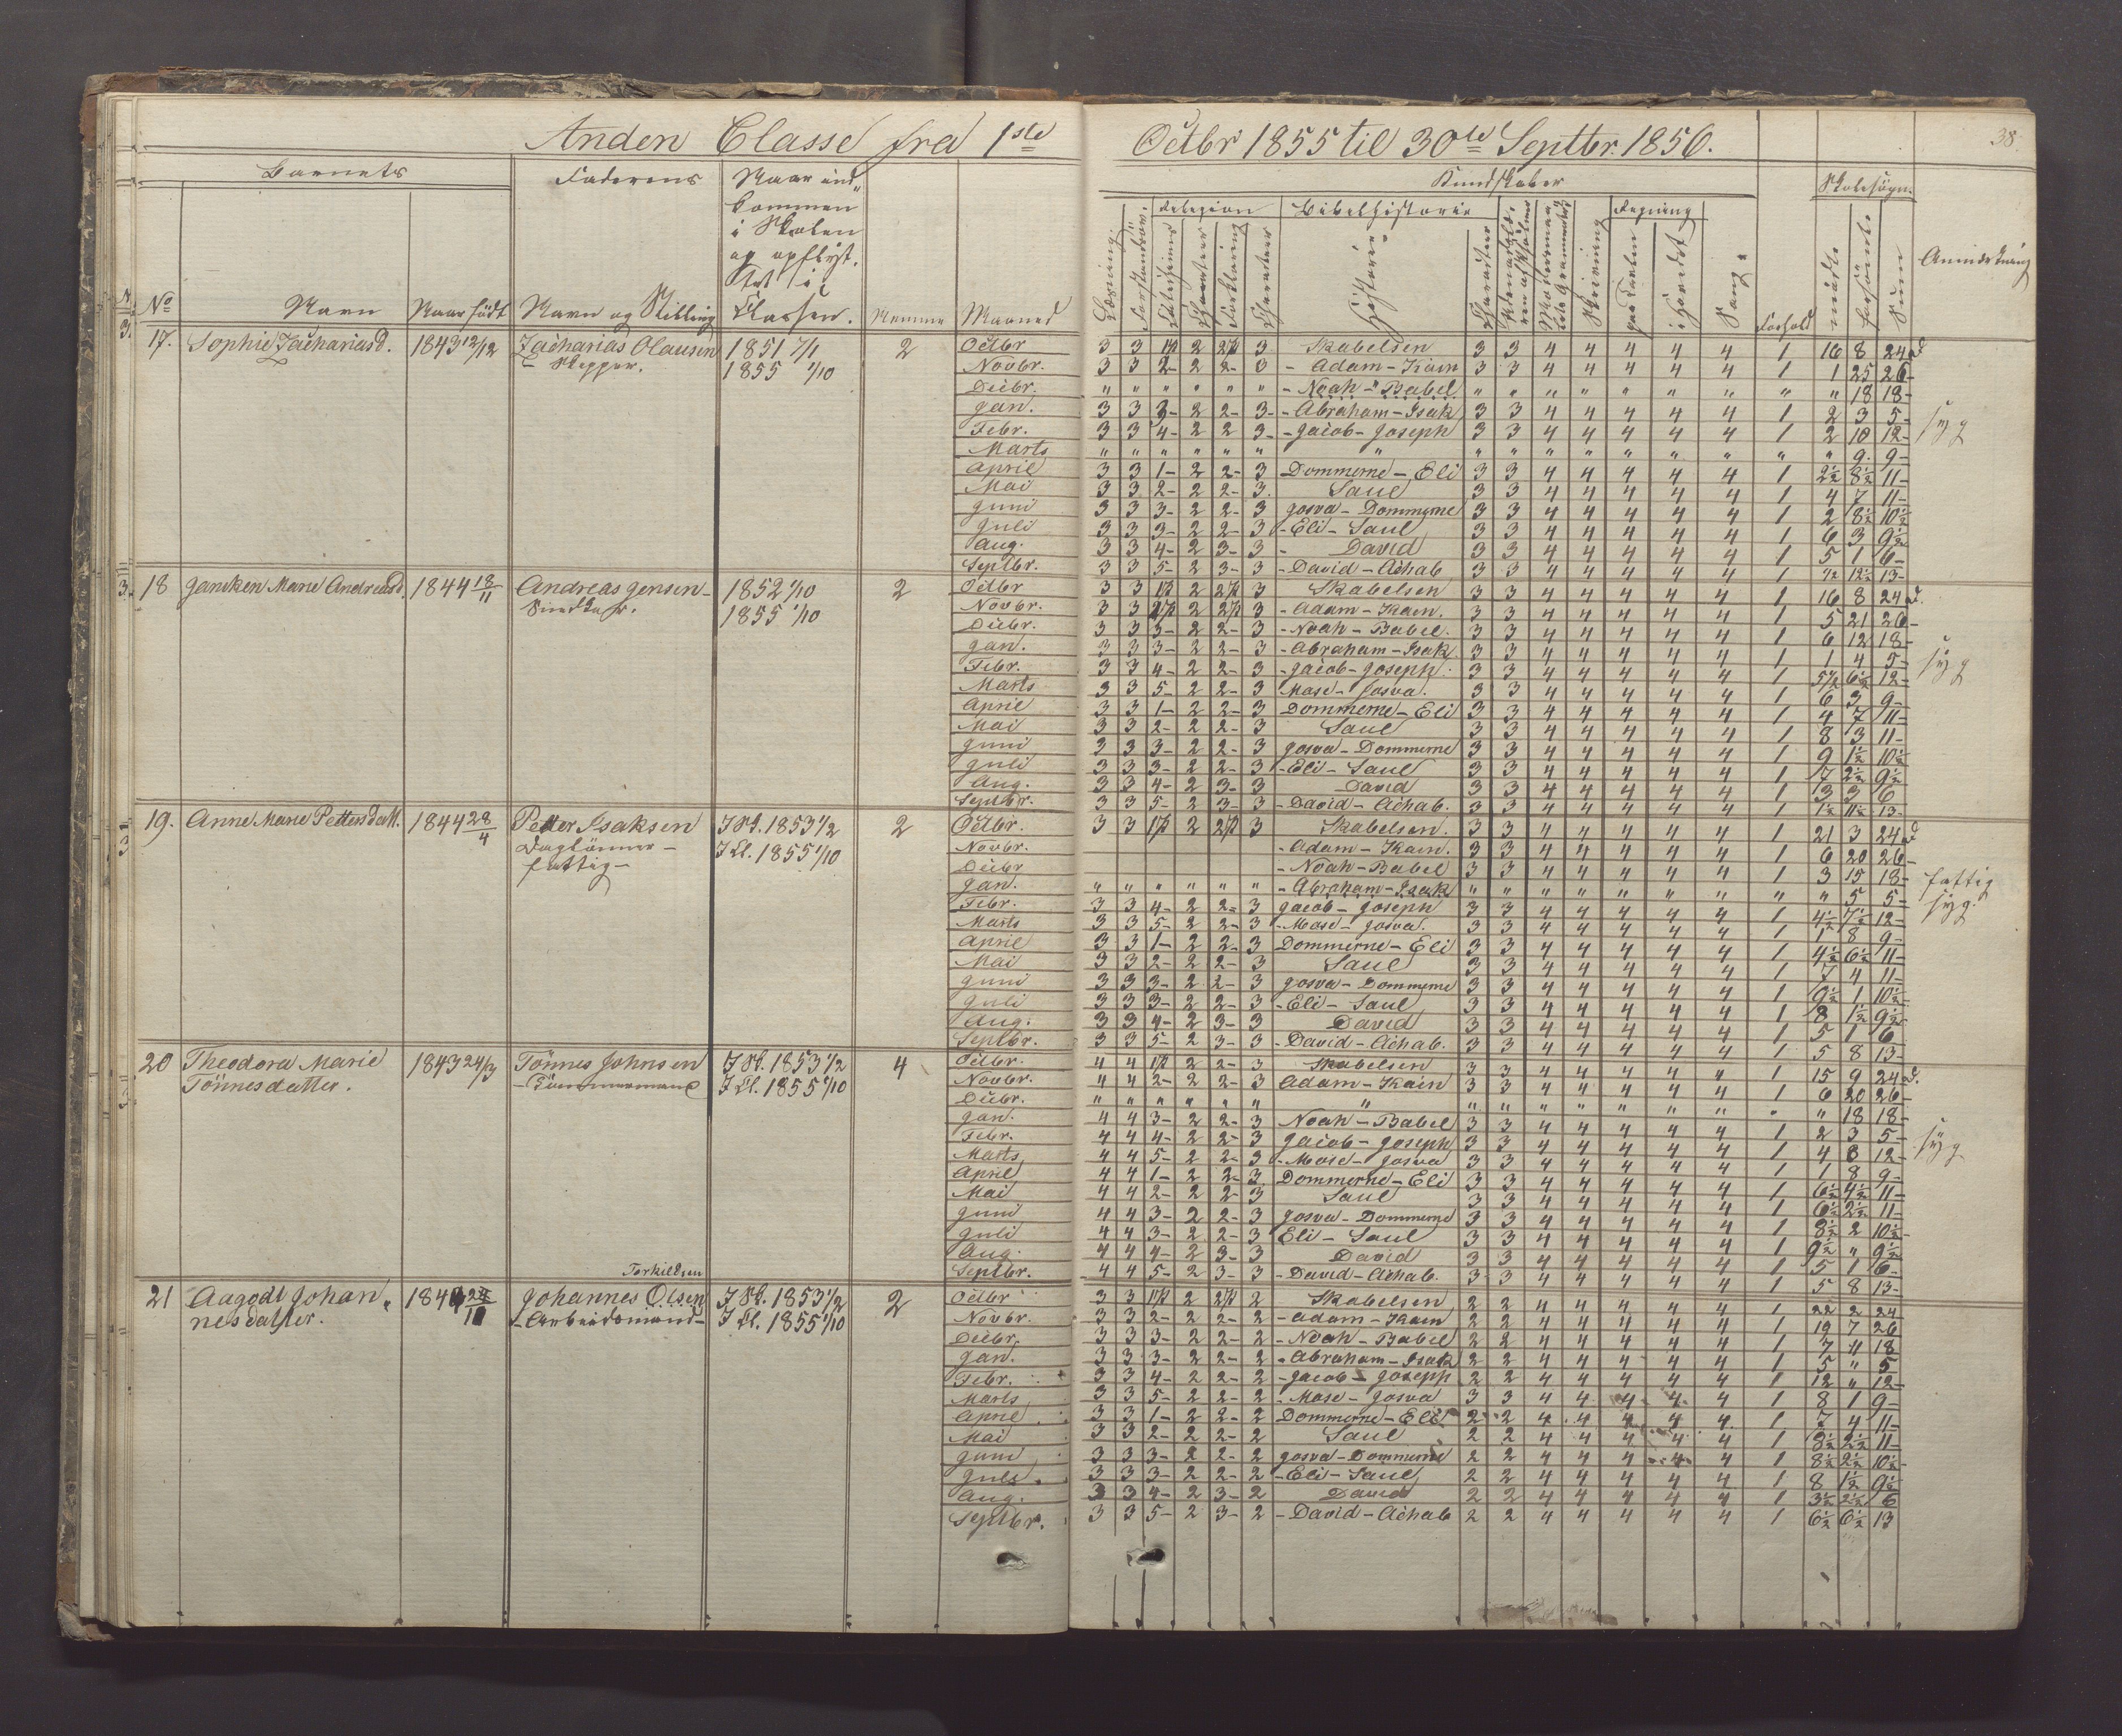 Anden Classe fra 1ste Octbr 1855 til 30te Septbr. 1856.
38.
Barnets
Faderens
Naar ind-
kommen
i Skolen
og opflyt-
tet i
Classen.
Kundskaber
Skolesögn.
Religion
Bibelhistorie
Regning
No Navn Naar födt Navn og Stilling Nemme Maaned
Læsning. Historie Skrivning paa Tavlen i Hovedet Sang. Forhold mödte forsömte Sum Anmærkning
17. Sophie Zachariasd. 1843 12/12 Zacharias Olausen 1851 7/1 2 Octbr 3 3 1ß 2 2ß 3 Skabelsen 3 3 4 4 4 4 4 1 16 8 24 d
Skipper. 1855 1/10 Novbr. 3 3 2- 2 2- 3 - Adam - Kain 3 3 4 4 4 4 4 1 1 25 26-
Decbr. " " " " " " - Noah - Babel " " " " " " " " " 18 18-
Jan. 3 3 3- 2 2- 3- - Abraham - Isak 3 3 4 4 4 4 4 1 2 3 5- syg
Febr. 3 3 4- 2 2 3- - Jacob - Joseph 3 3 4 4 4 4 4 1 2 10 12-
Marts " " " " " " " " " " " " " " " " 9. 9-
April 3 3 1- 2 2- 3 Dommerne - Eli 3 3 4 4 4 4 4 1 2½ 8½ 11-
Mai 3 3 2- 2 2- 3. Saul 3 3 4 4 4 4 4 1 4 7 11-
Juni 3 3 3- 2 2- 3 Josva - Dommerne 3 3 4 4 4 4 4 1 2 8½ 10½
Juli 3 3 3- 2 2- 3 - Eli - Saul 3 3 4 4 4 4 4 1 6 3 9½
Aug. 3 3 4- 2 3- 3 - David 3 3 4 4 4 4 4 1 5 1 6-
Septbr. 3 3 5- 2 3- 3 - David - Achab 3 3 4 4 4 4 4 1 ½ 12½ 13-
18 Janeken Marie Andreasd. 1844 18/11 Andreas Jensen- 1852 1/10 2 Octbr 3 3 1ß 2 2ß 3 Skabelsen 3 3 4 4 4 4 4 1 16 8 24 d.
1855 1/10 Novbr. 3 3 2ß 2 2ß 3 - Adam - Kain. 3 3 4 4 4 4 4 1 5 21 26-
Decbr. 3 3 3- 2 2- 3 - Noah - Babel. 3 3 4 4 4 4 4 1 6 12 18-
Jan. 3 3 3- 2 2- 3 - Abraham - Isak 3 3 4 4 4 4 4 1 1 4 5- syg
Febr. 3 3 4- 2 2- 3 - Jacob - Joseph. 3 3 4 4 4 4 4 1 5½ 6½ 12-
Marts 3 3 5- 2 2- 3 Mose - Josva. 3 3 4 4 4 4 4 1 6 3 9-
April 3 3 1- 2 2- 3 Dommerne - Eli 3 3 4 4 4 4 4 1 4 7 11-
Mai 3 3 2- 2 2- 3 Saul 3 3 4 4 4 4 4 1 8 3 11-
Juni 3 3 3- 2 2- 3 Josva - Dommerne 3 3 4 4 4 4 4 1 9 1½ 10½
Juli 3 3 3- 2 2- 3 - Eli - Saul 3 3 4 4 4 4 4 1 7 2½ 9½
Aug. 3 3 4- 2 3- 3 David 3 3 4 4 4 4 4 1 3 3 6
Septbr. 3 3 5- 2 3- 3 - David - Achab. 3 3 4 4 4 4 4 1 1½ 11½ 13-
19. Anne Marie Pettersdatt. 1844 28/4 Petter Isaksen I Sk. 1853 1/2 2 Octbr. 3 3 1ß 2 2ß 3 Skabelsen. 3 3 4 4 4 4 4 1 21 3 24 d
Daglönner- I Cl. 1855 1/10 Novbr. - Adam - Kain. 3 3 4 4 4 4 4 1 6 20 26-
fattig- Decbr - Noah - Babel 3 3 4 4 4 4 4 1 3 15 18- fattig
Jan. " " " " " " - Abraham - Isak " " " " " " " " " 5 5- syg.
Febr. 3 3 4- 2 2- 3 Jacob - Joseph 3 3 4 4 4 4 4 1 4½ 7½ 12-
Marts 3 3 5- 2 2- 3 - Mose - Josva. 3 3 4 4 4 4 4 1 1 8 9-
April 3 3 1- 2 2- 3 Dommerne - Eli 3 3 4 4 4 4 4 1 4½ 6½ 11-
Mai 3 3 2- 2 2- 3 Saul 3 3 4 4 4 4 4 1 7 4 11-
Juni 3 3 3- 2 2- 3 Josva - Dommerne 3 3 4 4 4 4 4 1 9½ 1 10½
Juli 3 3 3- 2 2- 3 - Eli - Saul 3 3 4 4 4 4 4 1 8 1½ 9½
Aug. 3 3 4- 2 3- 3 David 3 3 4 4 4 4 4 1 5 1 6
Septbr. 3 3 5- 2 3- 3 - David - Achab. 3 3 4 4 4 4 4 1 5 8 13-
20 Theodora Marie 1843 24/3 Tönnes Johnsen I Sk. 1853 1/2 4 Octbr. 4 4 1ß 2 2- 3 Skabelsen 3 3 4 4 4 4 " 1 15 9 24 d.
Tönnesdatter. -Tömmermand I Cl. 1855 1/10 Novbr. 4 4 2- 2 2- 3 Adam - Kain 3 3 4 4 4 4 4 1 6 20 26-
Decbr. " " " " " " " " " " " " " " " " 18 18-
Jan. 4 4 3- 2 2- 3 Noah - Babel 3 3 4 4 4 4 4 1 2 3 5- syg
Febr. 4 4 4- 2 2- 3 Jacob - Joseph 3 3 4 4 4 4 4 1 4 8 12-
Marts 4 4 5- 2 2- 3 - Mose - Josva 3 3 4 4 4 4 4 1 1 8 9-
April 4 4 1- 2 2- 3 Dommerne - Eli 3 3 4 4 4 4 4 1 6½ 4½ 11-
Mai 4 4 2- 2 2- 3 Saul 3 3 4 4 4 4 4 1 6½ 2½ 11-
Juni 4 4 3- 2 2- 3 Josva - Dommerne 3 3 4 4 4 4 4 1 8½ 2 10½-
Juli 4 4 3- 2 2- 3 Eli - Saul 3 3 4 4 4 4 4 1 9½ " 9½
Aug. 4 4 4- 2 3- 3 David 3 3 4 4 4 4 4 1 5 1 6-
Torkildsen
Septbr. 4 4 5- 2 3- 3 - David - Achab. 3 3 4 4 4 4 4 1 5 8 13-
21 Aagodt Johan- Johannes Olsen I Sk. 1853 1/2 2 Octbr 3 3 1ß 2 2ß 2 Skabelsen 2 2 4 4 4 4 4 1 22 2 24
nesdatter. -Arbeidsmand- I Cl. 1855 1/10 Novbr. 3 3 2- 2 2- 2 - Adam - Kain 2 2 4 4 4 4 4 1 19 7 26
Decbr. 3 3 3- 2 2- 2 - Noah - Babel 2 2 4 4 4 4 4 1 7 11 18
Jan. 3 3 3- 2 2- 2 - Abraham - Isak 2 2 4 4 4 4 4 1 5 " 5
Febr. 3 3 4- 2 2- 2 - Jacob - Joseph 2 2 4 4 4 4 4 1 12 " 12-
Marts 3 3 5- 2 2- 2 - Mose - Josva 3 3 4 4 4 4 4 1 8 1 9-
April 3 3 1- 2 2- 2 Dommerne - Eli 2 2 4 4 4 4 4 1 7 4 11-
Mai 3 3 2- 2 2- 2 Saul 2 2 4 4 4 4 4 1 8½ 2½ 11-
Juni 3 3 3- 2 2- 2 Josva - Dommerne 2 2 4 4 4 4 4 1 8½ 2½ 10½-
Juli 3 3 3- 2 2- 2 - Eli - Saul 2 2 4 4 4 4 4 1 8 1½ 9½
Aug. 3 3 4- 2 3- 2 David 2 2 4 4 4 4 4 1 3½ 2½ 6
Septbr. 3 3 5- 2 3- 2 - David - Achab 2 2 4 4 4 4 4 1 6½ 6½ 13